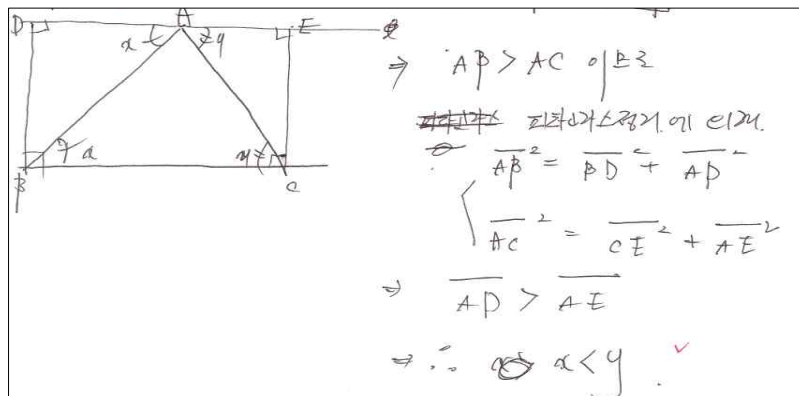 D A E l
x y
a y
B C
⇒ AB > AC 이므로
피타고라스정리에 의해.
AB² = BD² + AD²
AC² = CE² + AE²
⇒ AD > AE
⇒ ∴ x < y.